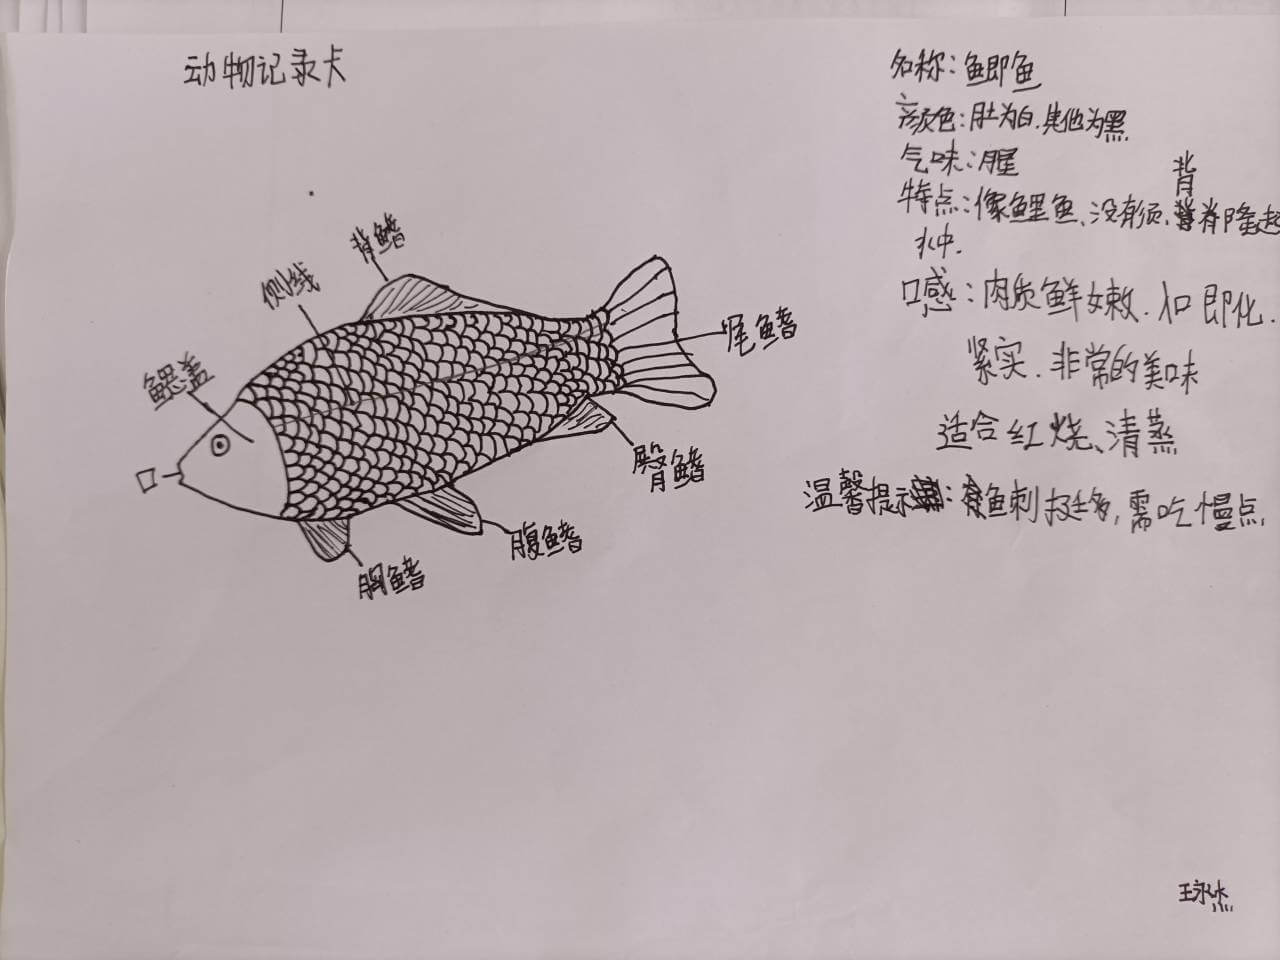 动物记录卡
名称：鲫鱼
颜色：肚为白.其他为黑
气味：腥
背
特点：像鲤鱼、没有须、脊隆起
口感：肉质鲜嫩.入口即化.
紧实.非常的美味
适合红烧、清蒸
温馨提示：鱼刺挺多,需吃慢点
背鳍
侧线
鳃盖
口
尾鳍
臀鳍
腹鳍
胸鳍